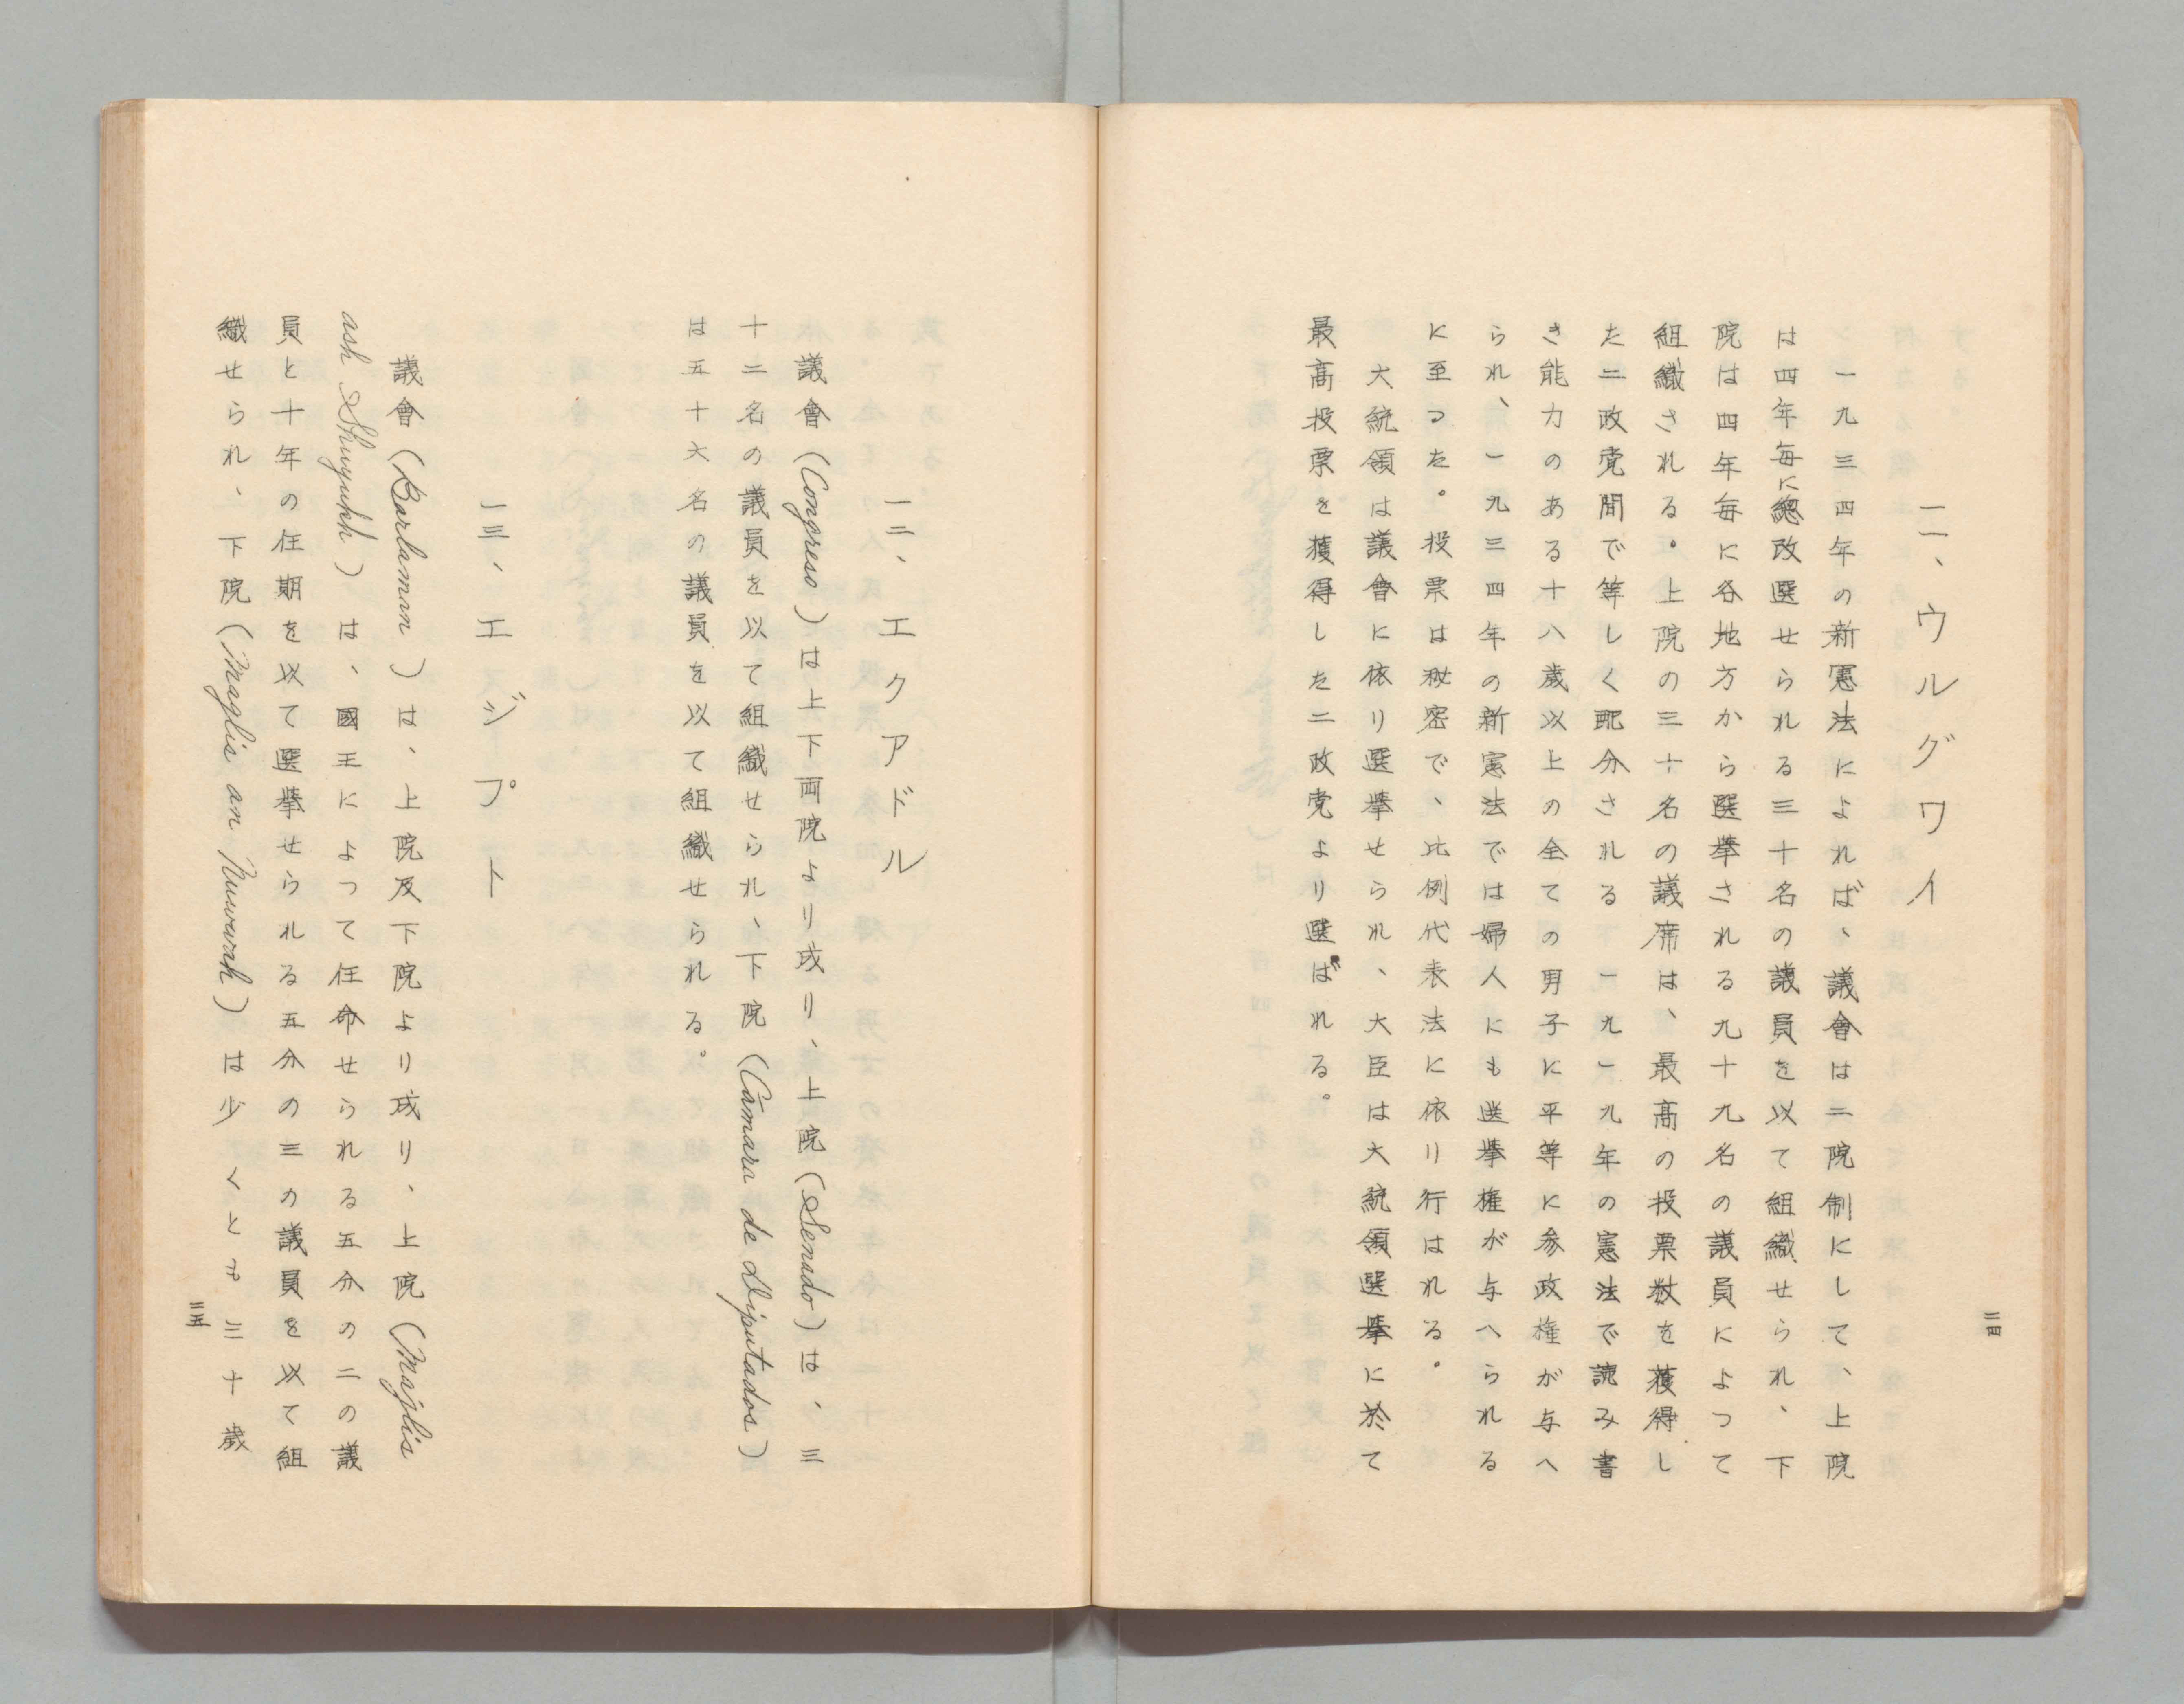 二、ウルグワイ
一九三四年の新憲法によれば、議會は二院制にして、上院
は四年毎に總改選せられる三十名の議員を以て組織せられ、下
院は四年毎に各地方から選挙される九十九名の議員によつて
組織される。上院の三十名の議席は、最高の投票数を獲得し
た二政党間で等しく配分される 一九一九年の憲法で読み書
き能力のある十八歳以上の全ての男子に平等に参政権が与へ
られ、一九三四年の新憲法では婦人にも選挙権が与へられる
に至つた。投票は秘密で、比例代表法に依り行はれる。
大統領は議會に依り選挙せられ、大臣は大統領選挙に於て
最高投票を獲得した二政党より選ばれる。
二四
一二、エクアドル
議會(Congreso)は上下両院より成り、上院(Senado)は、三
十二名の議員を以て組織せられ、下院(Cámara de Diputados)
は五十六名の議員を以て組織せられる。
一三、エジプト
議會(Barlaman)は、上院及下院より成り、上院(Majlis
ash Shuyukh)は、國王によつて任命せられる五分の二の議
員と十年の任期を以て選挙せられる五分の三の議員を以て組
織せられ、下院(Maglis an Nuwwah)は少くとも三十歳
二五